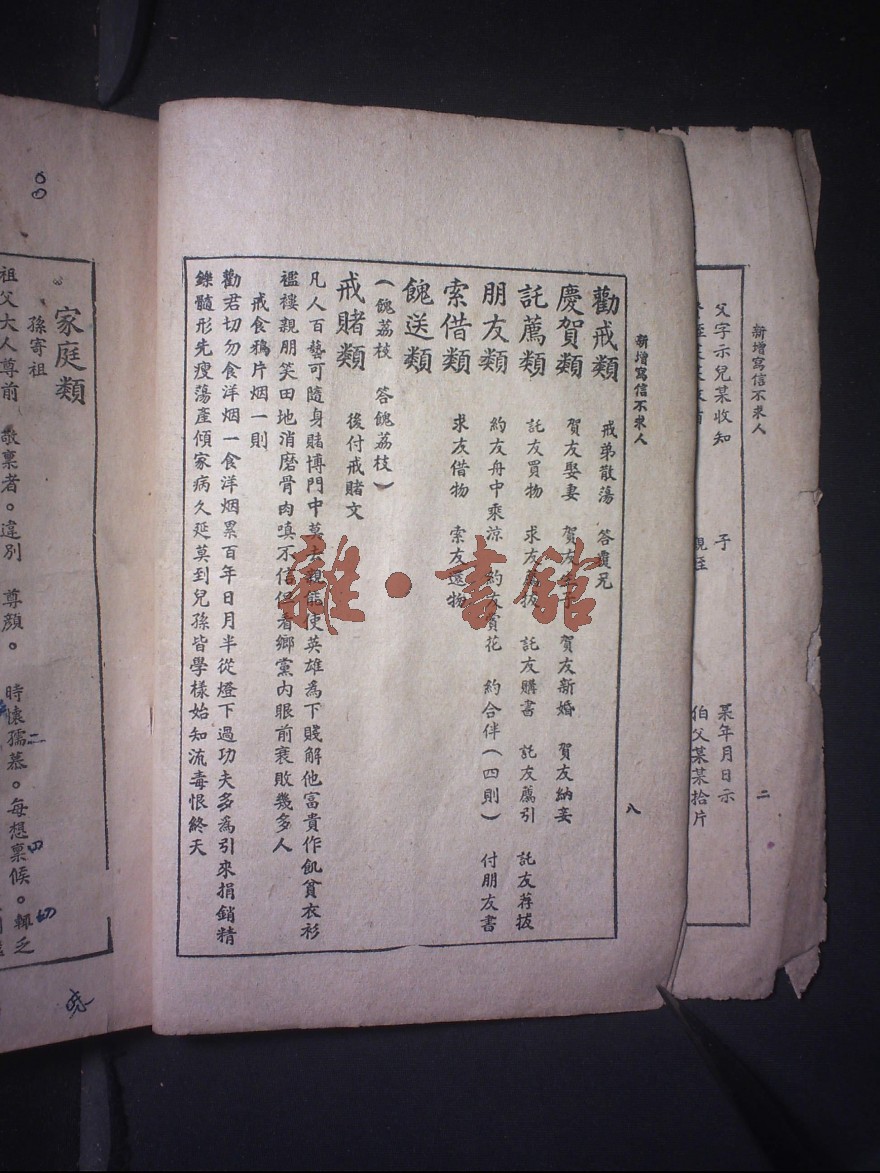 父字示兒某收知
子
某年月日示
伯父某某拾片
新增寫信不求人
二
新增寫信不求人
八
勸戒類 戒弟散蕩 答覆兄
慶賀類 賀友娶妻 賀友生子 賀友新婚 賀友納妾
託薦類 託友買物 求友薦拔 託友購書 託友薦引 託友荐拔
朋友類 約友舟中乘涼 約友賞花 約合伴(四則) 付朋友書
索借類 求友借物 索友還物
餽送類
(餽荔枝 答餽荔枝)
戒賭類 後付戒賭文
凡人百藝可隨身賭博門中莫去親能使英雄為下賤解他富貴作飢貧衣衫
襤褸親朋笑田地消磨骨肉嗔不信但看鄉黨內眼前衰敗幾多人
戒食鴉片烟一則
勸君切勿食洋烟一食洋烟累百年日月半從燈下過功夫多為引來捐銷精
鑠髓形先瘦蕩產傾家病久延莫到兒孫皆學樣始知流毒恨終天
家庭類
孫寄祖
祖父大人尊前 敬稟者。違別 尊顏。 時懷孺慕。每想稟候。輒乏
雜·書館